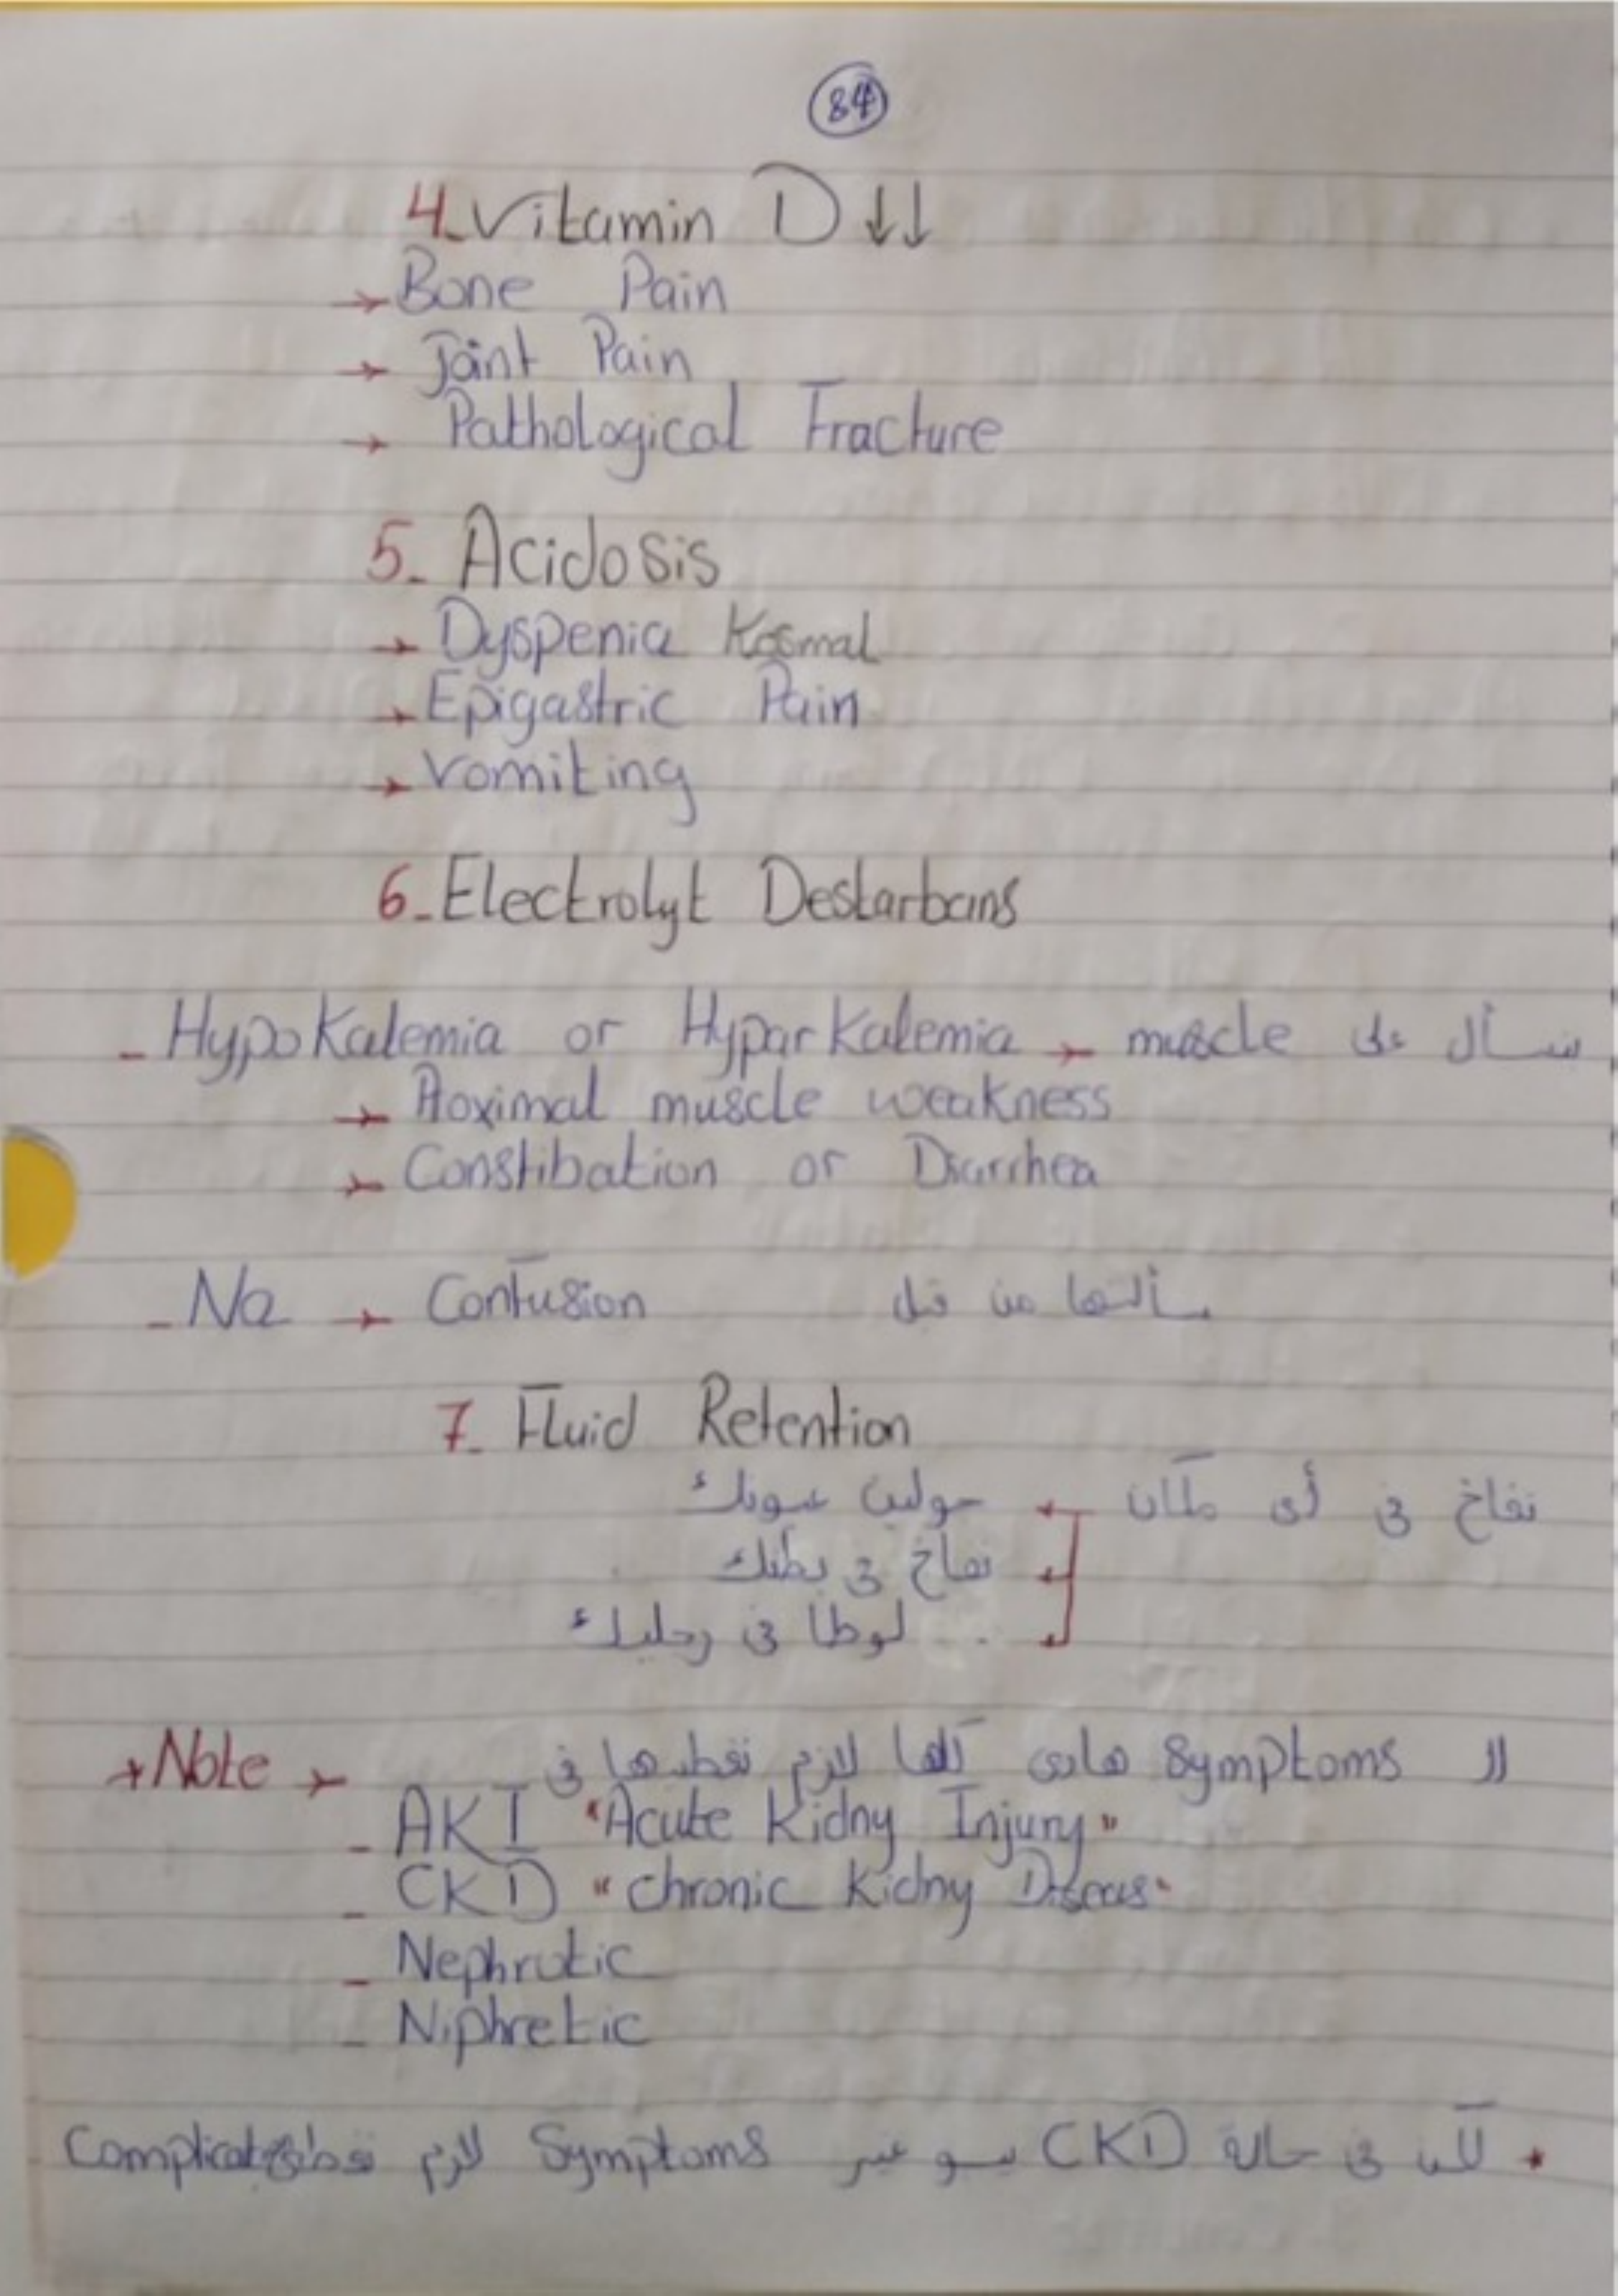 84
4_Vitamin D ↓↓
→ Bone Pain
→ Joint Pain
→ Pathological Fracture
5_ Acidosis
→ Dyspenia Kosmal
→ Epigastric Pain
→ Vomiting
6_Electrolyt Destarbans
_ HypoKalemia or HyparKalemia → muscle نسأل على
→ Proximal muscle weakness
→ Constibation or Diarrhea
_ Na → Confusion سألتها من قبل
7_ Fluid Retention
نفاخ فى أى مكان ← حولين عيونك
← نفاخ فى بطنك
← لوطا فى رجليك
* Note → الـ Symptoms هادى كلها لازم نغطيها فى
_ AKI "Acute Kidny Injury"
_ CKD "Chronic Kidny Diseas"
_ Nephrotic
_ Niphretic
* لكن فى حالة CKD بسو غير Symptoms لازم نغطى Complicat